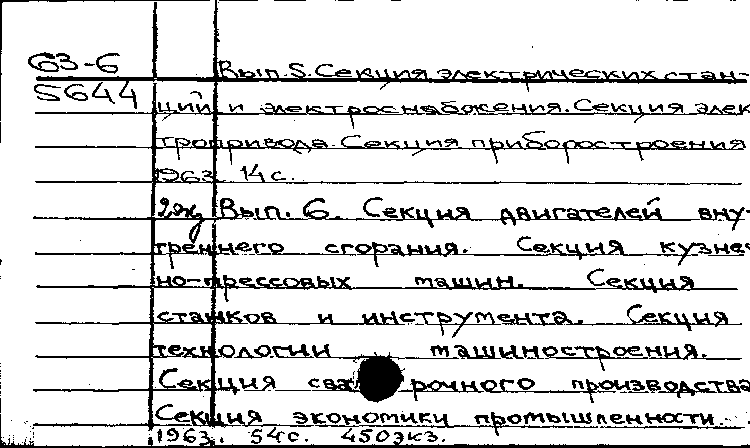 63-6
5644
Вып. 5. Секция электрических стан-
ций и электроснабжения. Секция элек
тропривода. Секция приборостроения
1963. 14 с.
2экз Вып. 6. Секция двигателей вну-
треннего сгорания. Секция кузне
но-прессовых машин. Секция
станков и инструмента. Секция
технологии машиностроения.
Секция сва рочного производства
Секция экономики промышленности.
1963. 54с. 450экз.